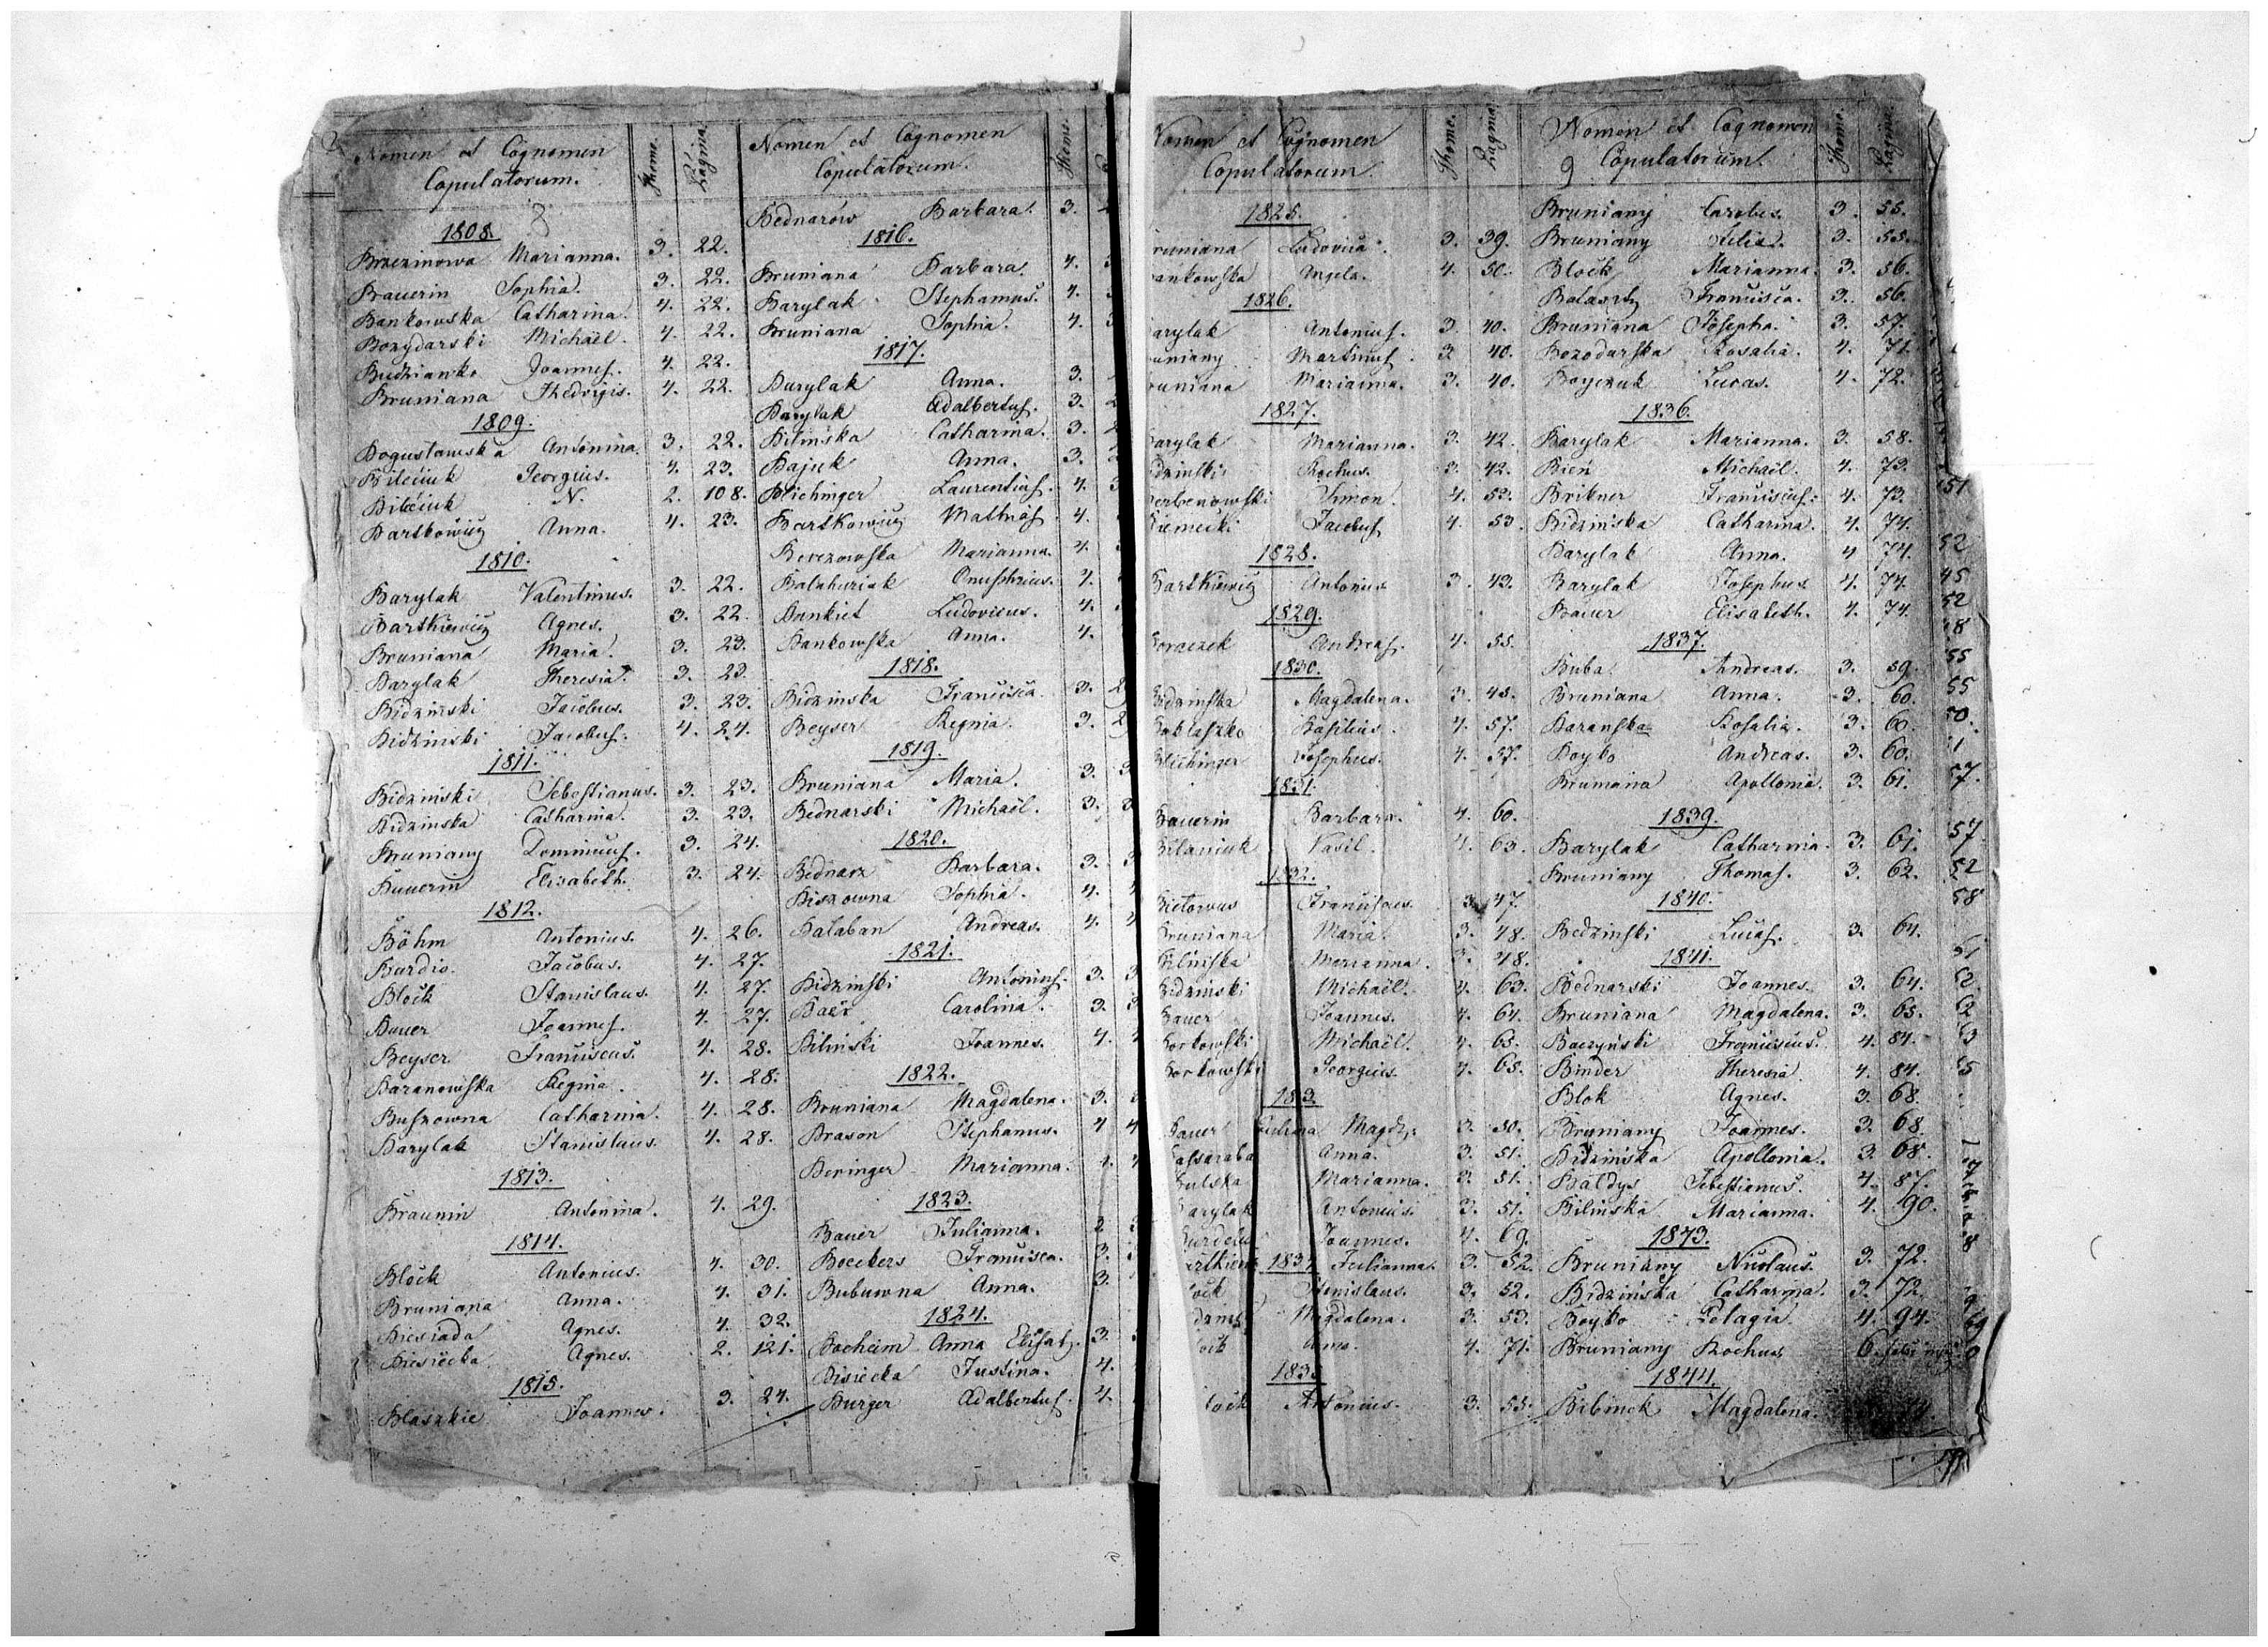 Nomen et Cognomen
Copulatorum.
Thome.
Pagina.
1808.
Brzezinowa Marianna. 3. 22.
Bauerin Sophia. 3. 22.
Bankowska Catharina. 4. 22.
Bozydarski Michaël. 4. 22.
Budzianko Joannes. 4. 22.
Bruniana Hedvigis. 4. 22.
1809.
Bogusławska Antonina. 3. 22.
Bilciuk Georgius. 4. 23.
Bilciuk N. 2. 108.
Bartkowicz Anna. 4. 23.
1810.
Barylak Valentinus. 3. 22.
Bartkiewicz Agnes. 3. 22.
Bruniana Maria. 3. 23.
Barylak Theresia. 3. 23.
Bidzinski Jacobus. 3. 23.
Bidzinski Jacobus. 4. 24.
1811.
Bidzinski Sebestianus. 3. 23.
Bidzinska Catharina. 3. 23.
Bruniany Dominicus. 3. 24.
Bauerin Elisabeth. 3. 24.
1812.
Böhm Antonius. 4. 26.
Bardio Jacobus. 4. 27.
Block Stanislaus. 4. 27.
Bauer Joannes. 4. 27.
Beyser Franciscus. 4. 28.
Baranowska Regina. 4. 28.
Buszowna Catharina. 4. 28.
Barylak Stanislaus. 4. 28.
1813.
Braunin Antonina. 4. 29.
1814.
Block Antonius. 4. 30.
Bruniana Anna. 4. 31.
Biesiada Agnes. 4. 32.
Biesiecka Agnes. 2. 121.
1815.
Blaszkie Joannes. 3. 24.
Nomen et Cognomen
Copulatorum.
Thome.
Bednarów Barbara. 3.
1816.
Bruniana Barbara. 4.
Barylak Stephanus. 4.
Bruniana Sophia. 4.
1817.
Barylak Anna. 3.
Barylak Adalbertus. 3.
Bilinska Catharina. 3.
Bajuk Anna. 3.
Blichinger Laurentius. 4.
Bartkowicz Mathias. 4.
Berezowska Marianna. 4.
Balahuriak Onuphrius. 4.
Bankiet Ludovicus. 4.
Bankowska Anna. 4.
1818.
Bidzinska Francisca. 3.
Beyser Regina. 3.
1819.
Bruniana Maria. 3.
Bednarski Michaël. 3.
1820.
Bednarz Barbara. 3.
Biszowna Sophia. 4.
Balaban Andreas. 4.
1821.
Bidzinski Antonius. 3.
Baer Carolina. 3.
Bilinski Joannes. 4.
1822.
Bruniana Magdalena. 3.
Brason Stephanus. 4
Beringer Marianna.
1823.
Bauer Julianna.
Boeckers Francisca. 3.
Bubuwna Anna. 3.
1824.
Bocheim Anna Elisab. 3.
Bisiecka Justina. 4.
Burger Adalbertus. 4.
Nomen et Cognomen
Copulatorum.
Thome.
Pagina
1825.
runiana Ludovica. 3. 39.
ankowska Angela. 4. 50.
1826.
arylak Antonius. 3. 40.
uniany Martinus. 3 40.
runiana Marianna. 3. 40.
1827.
arylak Marianna. 3. 42.
dzinski Rochus. 3. 42.
erbenowski Simon. 4. 52.
iemecki Jacobus 4. 53.
1828.
Bartkiewicz Antonius 3. 43.
1829.
oraczek Andreas. 4. 55.
1830.
Bidzinska Magdalena. 3. 45.
Bablaszko Basilius. 4. 57.
Blichinger Josephus. 4. 57.
1831.
Bauerin Barbara. 4. 60.
Bilaniuk Vasil. 4. 63.
1832.
Bietowus 3. 47.
Bruniana Maria. 3. 48.
Bilniska Marianna. 3. 48.
Bidzinski Michaël. 4. 63.
Bauer Joannes. 4. 64.
Borkowski Michaël. 4. 65.
Borkowski Georgius. 4. 65.
183.
Bauer Magd. 3. 50.
assaraba Anna. 3. 51.
ulska Marianna. 3. 51.
arylak Antonius. 3. 51.
Joannes. 4. 69.
183 Julianna. 3. 52.
ock Stanislaus. 3. 52.
Magdalena. 3. 53.
4. 71.
183
lock Antonius. 3. 55.
Nomen et Cognomen
9 Copulatorum.
Thome.
Pagina
Bruniany Carolus. 3. 55.
Bruniany Felix. 3. 55.
Block Marianna. 3. 56.
Francisca. 3. 56.
Bruniana Josepha. 3. 57.
Bozodarska Rosalia. 4. 71.
Boyczuk Lucas. 4. 72.
1836.
Barylak Marianna. 3. 58.
Bien Michaël. 4. 73.
Brikner Franciscus. 4. 73.
Bidzinska Catharina. 4. 74.
Barylak Anna. 4 74.
Barylak Josephus 4. 74.
Bauer Elisabeth. 4. 74.
1837.
Buba Andreas. 3. 59.
Bruniana Anna. 3. 60.
Baranska Rosalia. 3. 60.
Boyko Andreas. 3. 60.
Bruniana Apollonia. 3. 61.
1839.
Barylak Catharina. 3. 61.
Bruniany Thomas. 3. 62.
1840.
Bedzinski Lucas. 3. 64.
1841.
Bednarski Joannes. 3. 64.
Bruniana Magdalena. 3. 65.
Baczynski Franciscus. 4. 84.
Binder Theresia. 4. 84.
Blok Agnes. 3. 68.
Bruniany Joannes. 3. 68
Bidzinska Apollonia. 3. 68.
Baldys Sebestianus. 4. 87.
Bilinska Marianna. 4. 90.
1843.
Bruniany Nicolaus. 3. 72.
Bidzinska Catharina. 3. 72.
Boyko Pelagia. 4. 94.
Bruniany Rochus 6.
1844.
Bibinck Magdalena.